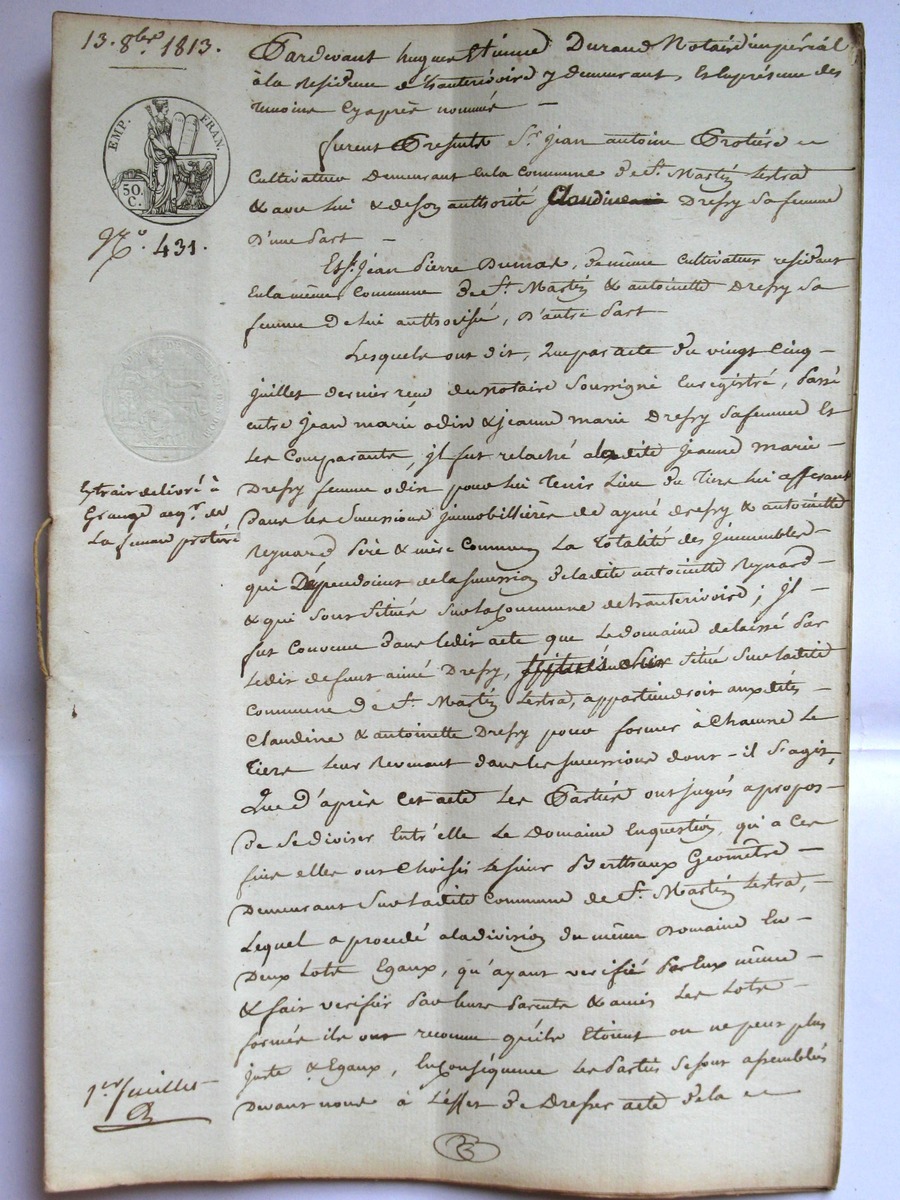 13. 8bre. 1813.
EMP. FRAN.
50. C.
N.o 431.
Extrait delivré à
Grange acqr. de
la femme protière
Pardevant hugues Etienne Durand Notaire impérial
à la Residence d'Hauterivoire y demeurant, Et Enpresence des
temoins Cyaprès nommés —
furent Presents Sr. jean antoine Protière
Cultivateur Demeurant Enla Commune de St. Martin Lestra
& avec Lui & deson authorité Claudine Drefry Sa femme
D'une Part —
Et Sr. jean Pierre Dumas, de même Cultivateur residant
Enla même Commune de St. Martin & antoinette Drefry Sa
femme de Lui authorisée, D'autre Part —
Lesquels ont dit, Que par acte du vingt Cinq —
juillet dernier recu du Notaire Soussigné Enregistré, Passé
entre jean marie odin & jeanne marie Drefry Safemme Et
Les Comparants, jl fut relaché aladite jeanne marie —
Drefry femme odin pour Lui tenir Lieu du Tiers Lui afferant
Dans les Successions jmmobillières de aymé drefry & antoinette
Reynard Père & mère Communs La totalité des jmmeubles —
qui Dépendoient delasuccession deladite antoinette Reynard —
& qui Sont Situés Surlacommune dehauterivoire ; jl —
fut Convenu Dans ledit acte que Ledomaine delaissé Par
Ledit defunt aimé Drefry, Situé Surladite
Commune de St. Martin Lestra, appartiendroit auxdites —
Claudine & antoinette Drefry pour former à Chacune Le
Tiers Leur Revenant dansles successions dont - il S'agit,
Que d'après Cet acte Les Parties ont jugés apropos —
de se diviser Entr'elle Le Domaine Enquestion, qu'a Ces
fins elles ont Choisis Lesieur Berthaux Geomètre —
Demeurant Surladite Commune de St. Martin Lestra, —
Lequel a procedé aladivision du même Domaine En —
Deux Lots Egaux, qu'ayant verifié Par Eux même —
& fait verifier Par leurs Parents & amis Les Lots —
formés ils ont reconnu qu'ils Etoient on ne peut plus
juste & Egaux, Enconséquence Les Parties Sesont assemblés
Devant nous à L'effet de Dresser acte de la
1er. feuillet